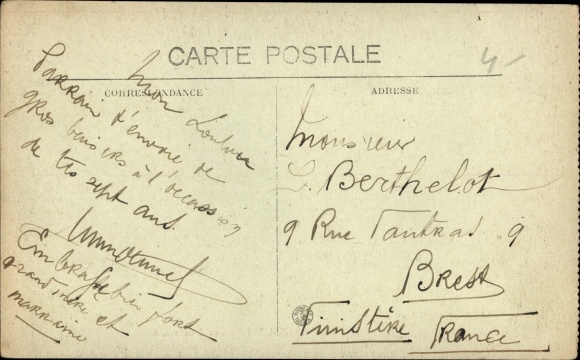 CARTE POSTALE
4-
CORRESPONDANCE
ADRESSE
Mon
Parrain t'envoie de
gros baisers à l'occasion
de tes sept ans.
Embrasse bien fort
grand'mère et
marraine
Monsieur
Berthelot
9 Rue 9
Brest
Finistère France